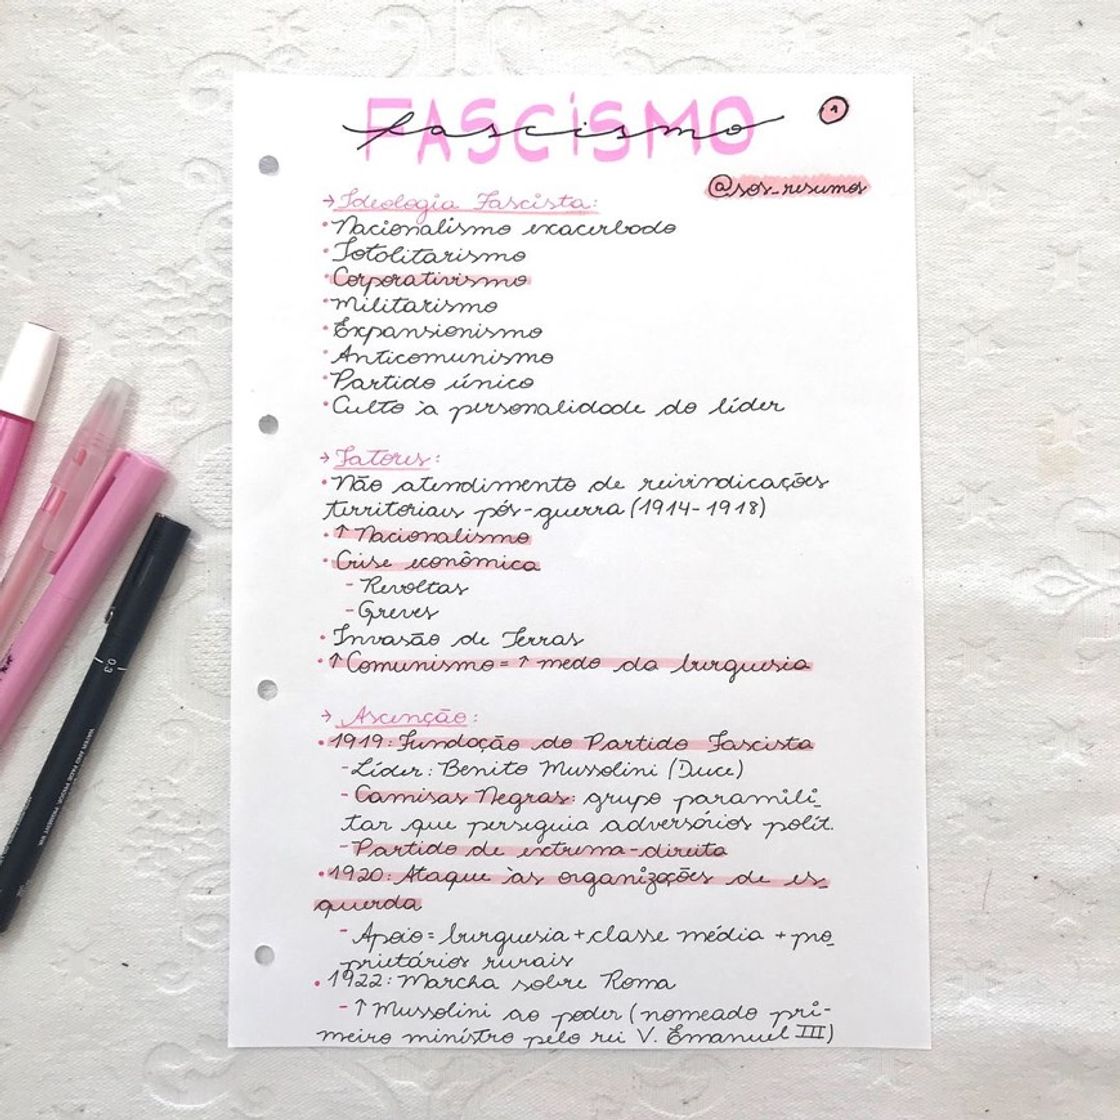 FASCISMO
fascismo
1
@sos_resumos
→ Ideologia Fascista:
• Nacionalismo exacerbado
• Totalitarismo
• Corporativismo
• Militarismo
• Expansionismo
• Anticomunismo
• Partido único
• Culto à personalidade do líder
→ Fatores:
• Não atendimento de reivindicações
territoriais pós-guerra (1914-1918)
• ↑ Nacionalismo
• Crise econômica
- Revoltas
- Greves
• Invasão de Terras
• ↑ Comunismo = ↑ medo da burguesia
→ Ascenção:
• 1919: Fundação do Partido Fascista
- Líder: Benito Mussolini (Duce)
- Camisas Negras: grupo paramili_
tar que perseguia adversários polít.
- Partido de extrema-direita
• 1920: Ataque às organizações de es_
querda
- Apoio = burguesia + classe média + pro_
prietários rurais
• 1922: Marcha sobre Roma
- ↑ Mussolini ao poder (nomeado pri-
meiro ministro pelo rei V. Emanuel III)
0.3